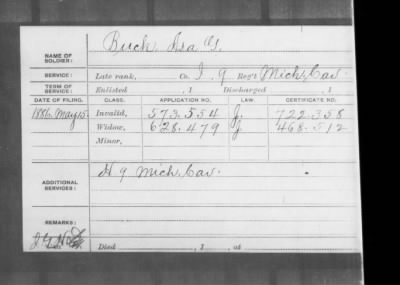 Buck, Ira G.
NAME OF SOLDIER:
SERVICE: Late rank, Co. I, 9 Reg't Mich. Cav.
TERM OF SERVICE: Enlisted , 1 Discharged , 1
DATE OF FILING. CLASS. APPLICATION NO. LAW. CERTIFICATE NO.
1886, May 15 Invalid, 573.554 J. 722.358
Widow, 628.479 J 468.512
Minor,
H 9 Mich. Cav.
ADDITIONAL SERVICES:
REMARKS:
Died , 1 , at